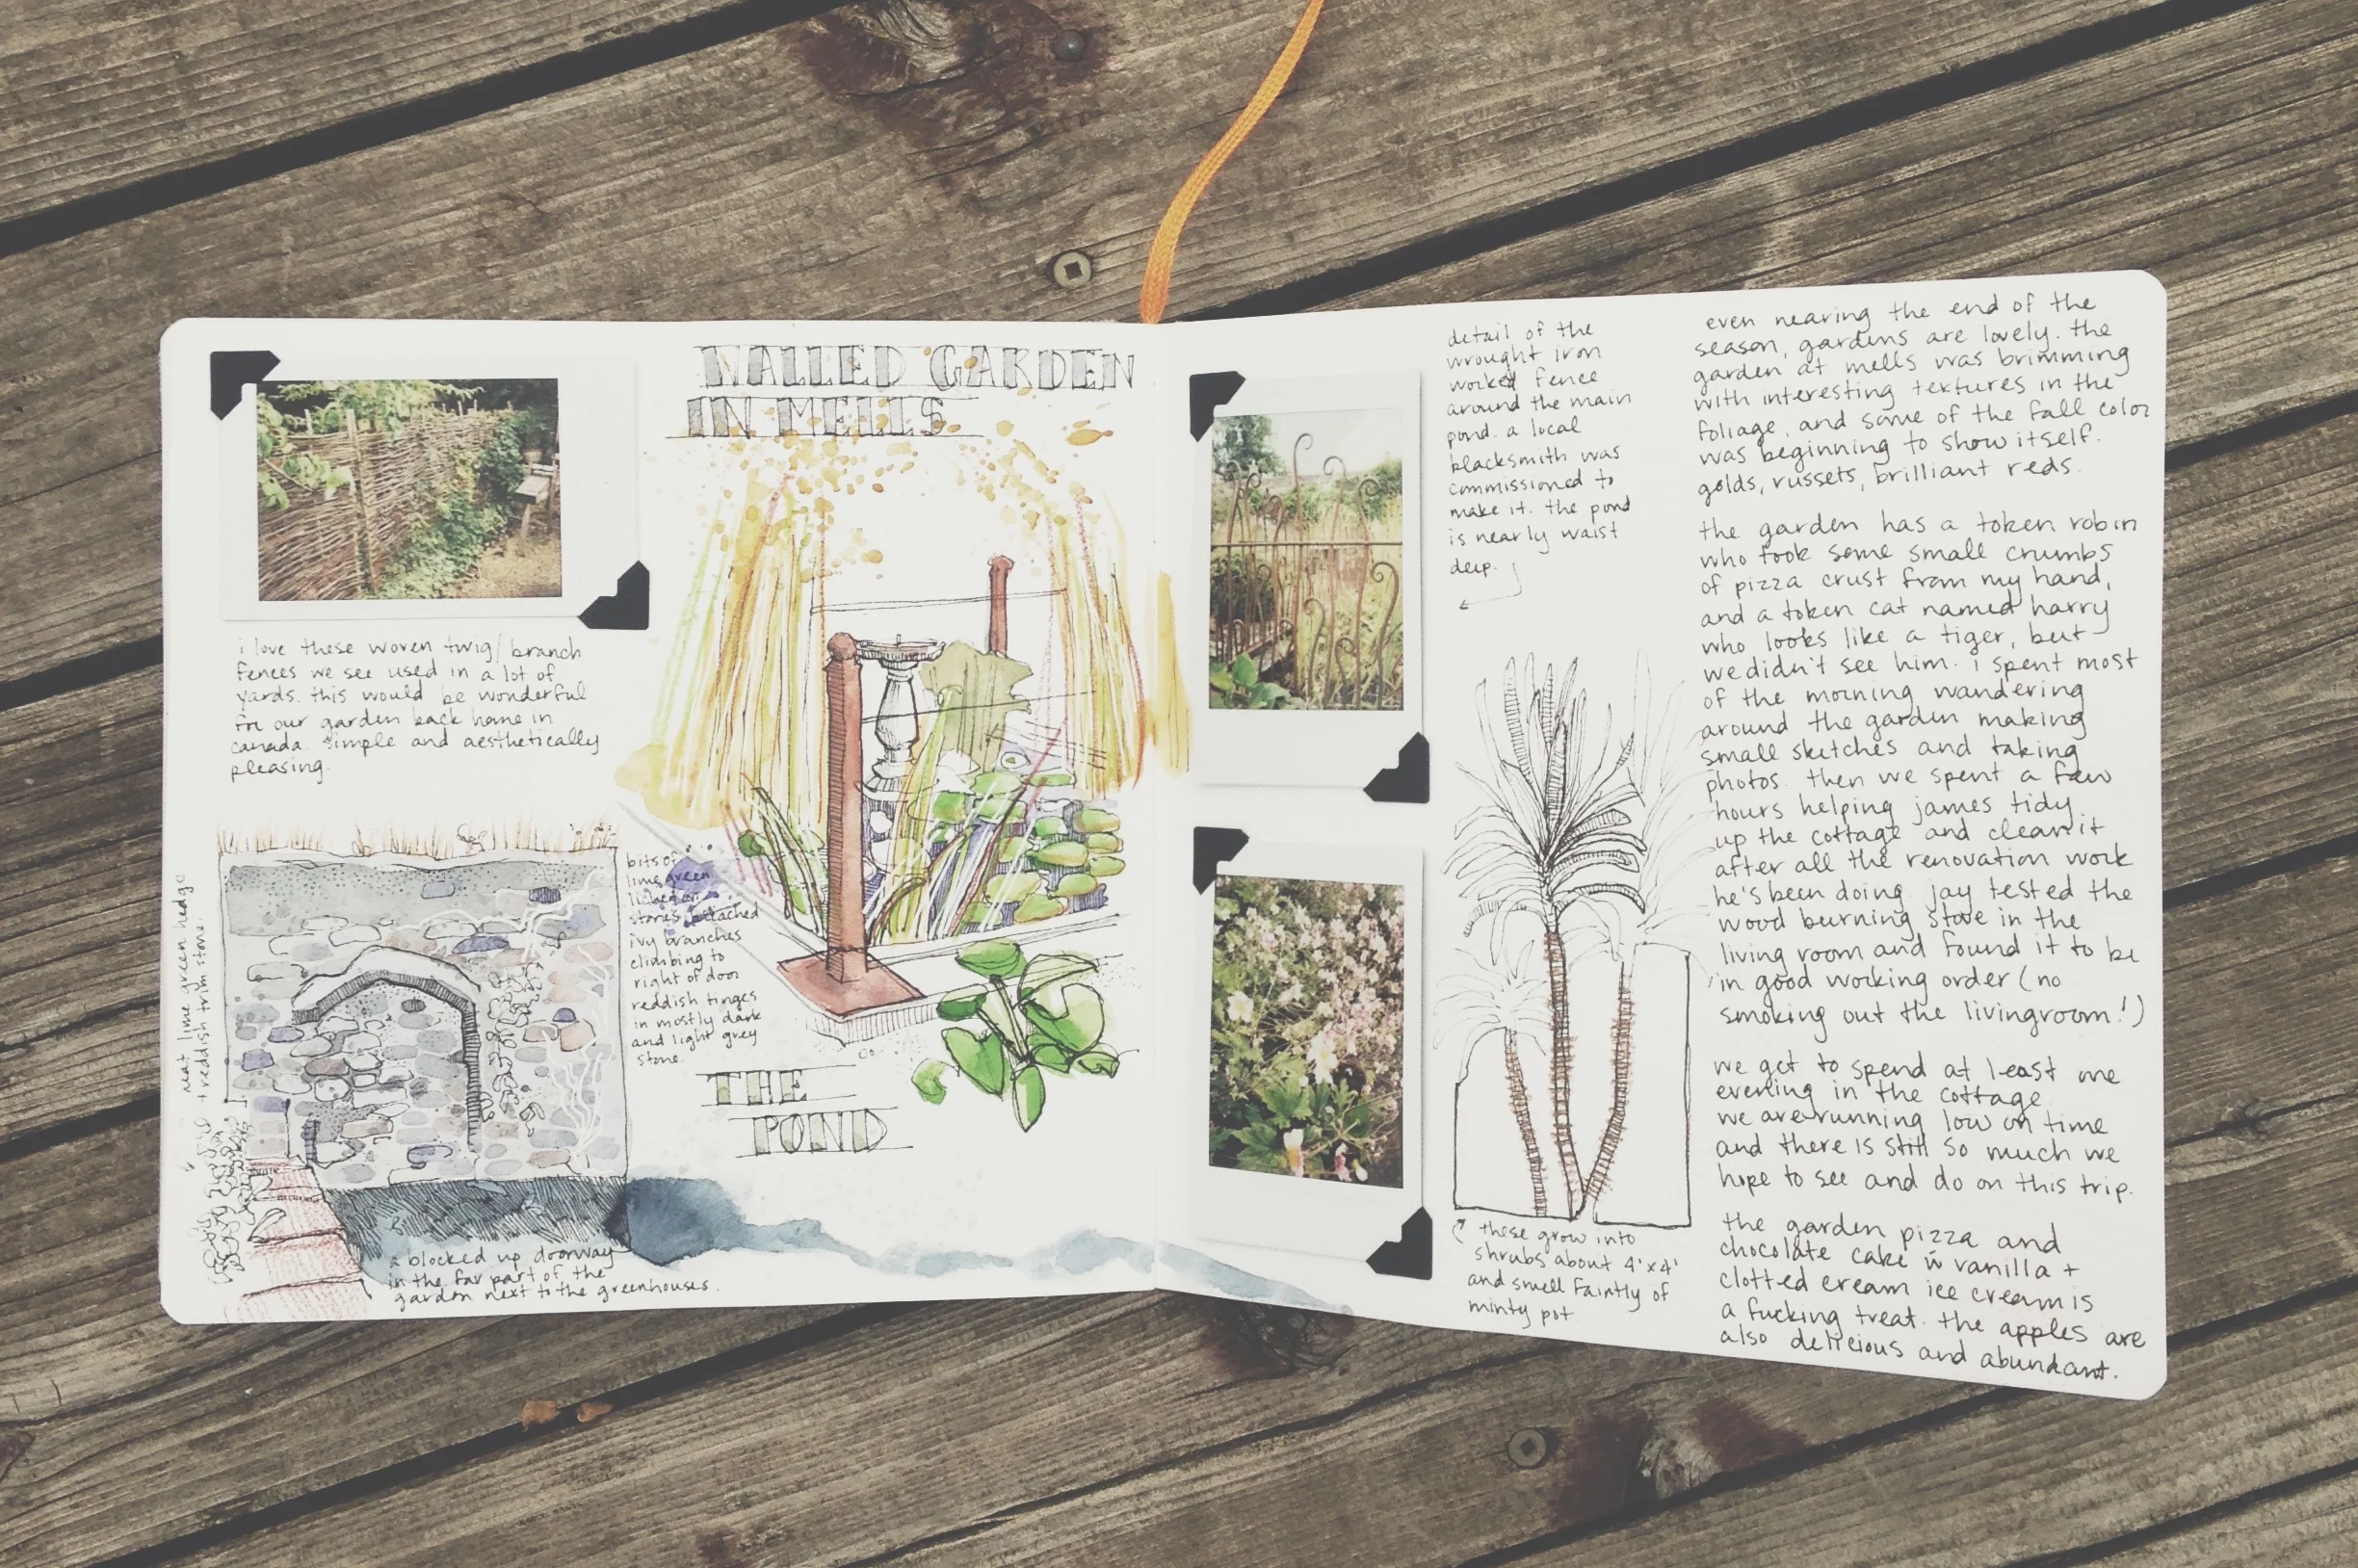 WALLED GARDEN
IN MELLS
i love these woven twig/branch
fences we see used in a lot of
yards. this would be wonderful
for our garden back home in
canada. simple and aesthetically
pleasing.
neat lime green hedge
+ reddish trim stone.
bits of
lime green
lichen on
stones. detached
ivy branches
climbing to
right of door
reddish tinges
in mostly dark
and light grey
stone.
THE
POND
a blocked up doorway
in the far part of the
garden next to the greenhouses.
detail of the
wrought iron
worked fence
around the main
pond. a local
blacksmith was
commissioned to
make it. the pond
is nearly waist
deep.
these grow into
shrubs about 4'x4'
and smell faintly of
minty pot
even nearing the end of the
season, gardens are lovely. the
garden at mells was brimming
with interesting textures in the
foliage, and some of the fall color
was beginning to show itself.
golds, russets, brilliant reds.
the garden has a token robin
who took some small crumbs
of pizza crust from my hand,
and a token cat named harry
who looks like a tiger, but
we didn't see him. i spent most
of the morning wandering
around the garden making
small sketches and taking
photos. then we spent a few
hours helping james tidy
up the cottage and clean it
after all the renovation work
he's been doing. jay tested the
wood burning stove in the
living room and found it to be
in good working order (no
smoking out the livingroom!)
we get to spend at least one
evening in the cottage.
we are running low on time
and there is still so much we
hope to see and do on this trip.
the garden pizza and
chocolate cake w vanilla +
clotted cream ice cream is
a fucking treat. the apples are
also delicious and abundant.